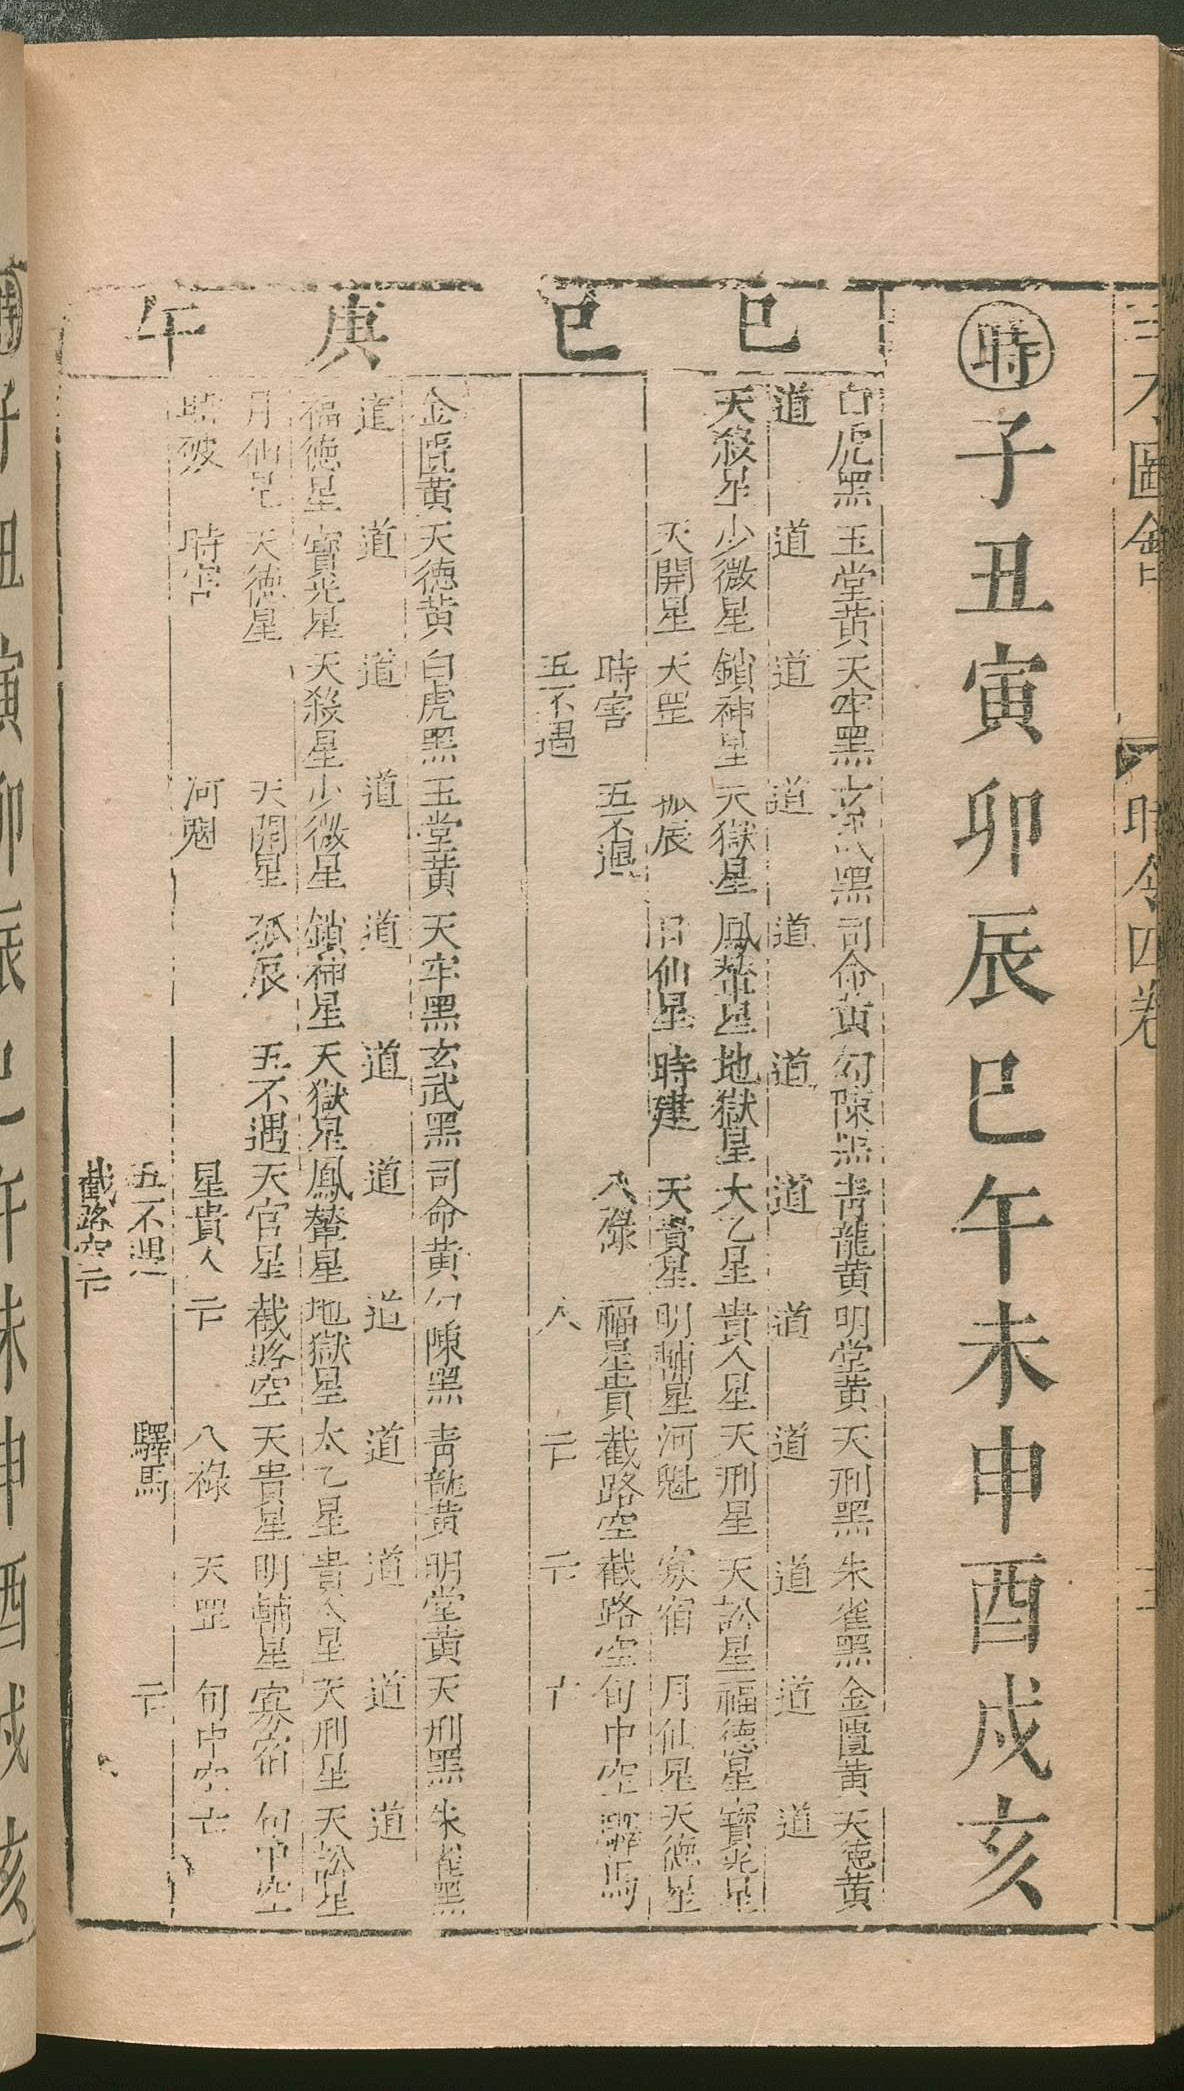 三才圖會 時令四卷
時子丑寅卯辰巳午未申酉戌亥
己巳
白虎黑 玉堂黃 天牢黑 玄武黑 司命黃 勾陳黑 青龍黃 明堂黃 天刑黑 朱雀黑 金匱黃 天德黃
道 道 道 道 道 道 道 道 道 道 道 道
天殺星 少微星 鎖神星 天獄星 鳳輦星 地獄星 大乙星 貴人星 天刑星 天訟星 福德星 寶光星
天開星 天罡 孤辰 日仙星 時建 天貴星 明輔星 河魁 寡宿 月仙星 天德星
時害 五不遇 八祿 福星貴 截路空 截路空 旬中空 驛馬
五不遇 人 亡 亡 亡
庚午
金匱黃 天德黃 白虎黑 玉堂黃 天牢黑 玄武黑 司命黃 勾陳黑 青龍黃 明堂黃 天刑黑 朱雀黑
道 道 道 道 道 道 道 道 道 道 道 道
福德星 寶光星 天殺星 少微星 鎖神星 天獄星 鳳輦星 地獄星 太乙星 貴人星 天刑星 天訟星
月仙星 天德星 天開星 孤辰 五不遇 天官星 截路空 天貴星 明輔星 寡宿 旬中空
時破 時害 河魁 星貴人 亡 八祿 天罡 旬中空 亡
五不遇 驛馬 亡
截路空亡